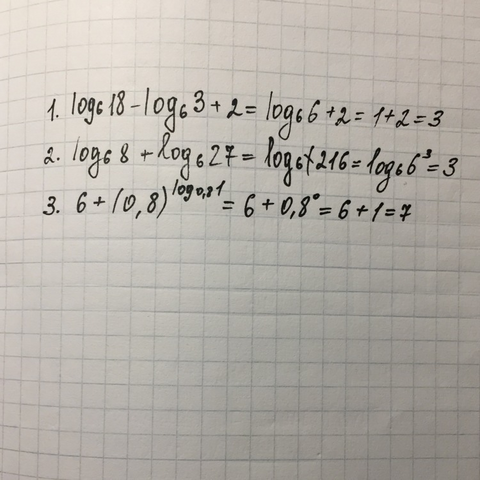 1. log₆18 - log₆3 + 2 = log₆6 + 2 = 1 + 2 = 3
2. log₆8 + log₆27 = log₆216 = log₆6³ = 3
3. 6 + (0,8)^log₀,₈1 = 6 + 0,8⁰ = 6 + 1 = 7